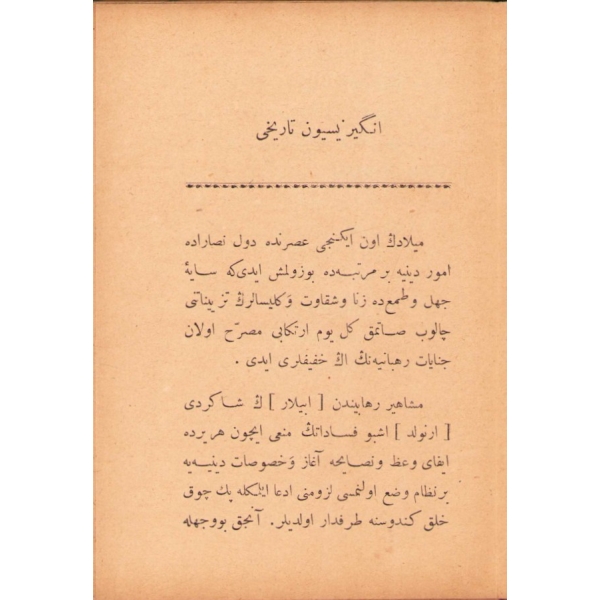 انگیزیسیون تاریخی
میلادڭ اون ایكنجی عصرنده دول نصاراده
امور دینیه بر مرتبه‌ده بوزولمش ایدی‌كه سایهٔ
جهل وطمعده زنا وشقاوت وكلیسالرڭ تزییناتنی
چالوب صاتمق كل یوم ارتكابی مصرّح اولان
جنایات رهبانیه‌نڭ اڭ خفیفلری ایدی .
مشاهیر رهابیندن [ ابیلار ] ڭ شاكردی
[ ارنولد ] اشبو فساداتڭ منعی ایچون هریرده
ایفای وعظ ونصایحه آغاز وخصوصات دینیه‌یه
برنظام وضع اولنمسی لزومنی ادعا ایتلكله پك چوق
خلق كندوسنه طرفدار اولدیلر . آنجق بووجهله